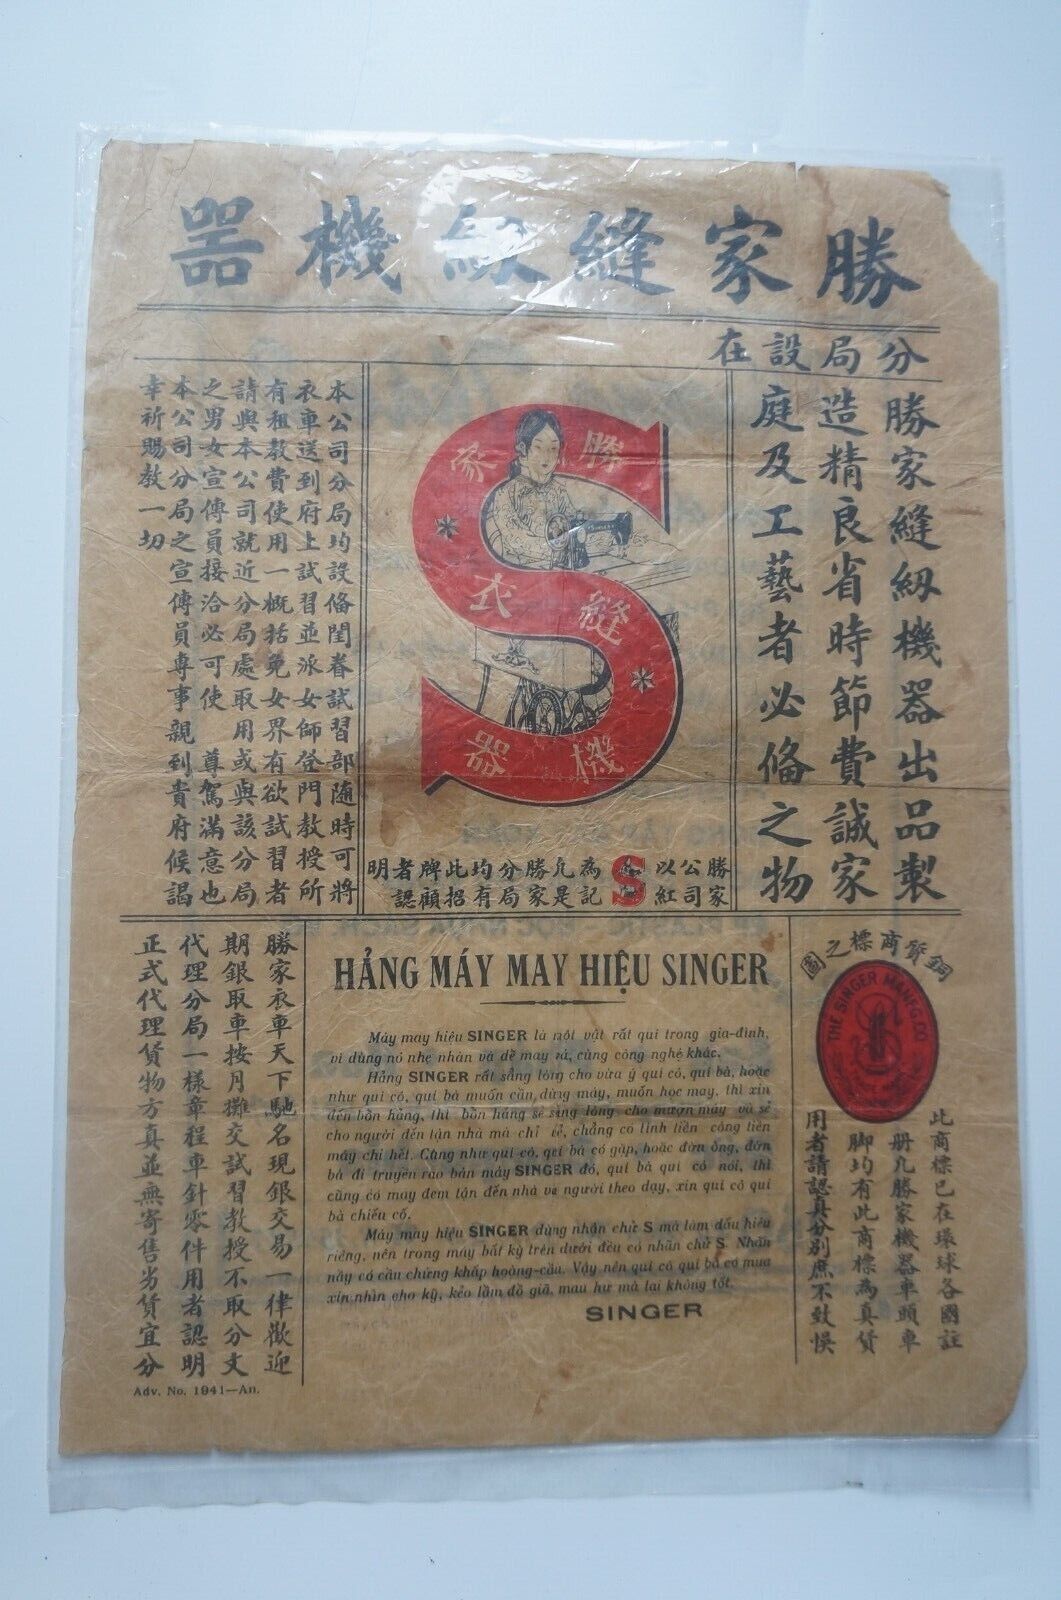 勝家縫紉機器
分局設在
勝家縫紉機器出品製
造精良省時節費誠家
庭及工藝者必俻之物
勝家
縫衣
機器
勝家公司以紅S為記凡是勝家分局均有此招牌顧者認明
本公司分局均設俻閨眷試習部隨時可將
衣車送到府上試習並派女師登門教授所
有租教費使用一概括免女界有欲試習者
請與本公司就近分局處取用或與該分局
之男女宣傳員接洽必可使 尊駕滿意也
本公司分局之宣傳員專事親到貴府候謁
幸祈賜教一切
銅質商標之圖
THE SINGER MANFG. CO.
此商標已在環球各國註
册凡勝家機器車頭車
脚均有此商標為真貨
用者請認真分別庶不致悞
HẢNG MÁY MAY HIỆU SINGER
Máy may hiệu SINGER là một vật rất quí trong gia-đình,
vì dùng nó nhẹ nhàn và dễ may vá, cùng công nghệ khác.
Hảng SINGER rất sẳng lòng cho vừa ý quí cô, quí bà, hoặc
như quí cô, quí bà muốn cần dùng máy, muốn học may, thì xin
đến bổn hảng, thì bổn hảng sẽ sẳng lòng cho mượn máy và sẽ
cho người đến tận nhà mà chỉ vẻ, chẳng có tính tiền công tiền
máy chi hết. Cũng như quí cô, quí bà có gặp, hoặc đờn ông, đờn
bà đi truyền rao bán máy SINGER đó, quí bà quí cô nói, thì
cũng có máy đem tận đến nhà và người theo dạy, xin quí cô quí
bà chiếu cố.
Máy may hiệu SINGER dùng nhận chữ S mà làm dấu hiệu
riêng, nên trong máy bất kỳ trên dưới đều có nhãn chữ S. Nhãn
nầy có cầu chứng khắp hoàng-cầu. Vậy nên quí cô quí bà có mua
xin nhìn cho kỹ, kẻo lầm đồ giã, mau hư mà lại không tốt.
SINGER
勝家衣車天下馳名現銀交易一律歡迎
期銀取車按月攤交試習教授不取分文
代理分局一樣章程車針零件用者認明
正式代理貨物方真並無寄售劣貨宜分
Adv. No. 1941—An.